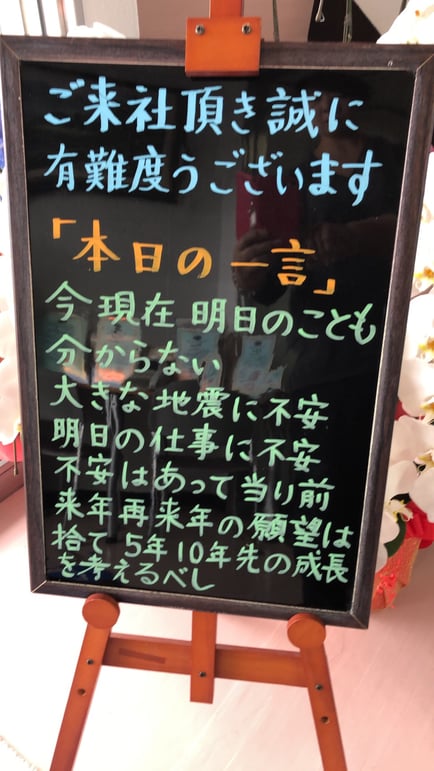 ご来社頂き誠に
有難度うございます
「本日の一言」
今現在 明日のことも
分からない
大きな地震に不安
明日の仕事に不安
不安はあって当り前
来年再来年の願望は
捨て 5年10年先の成長
を考えるべし